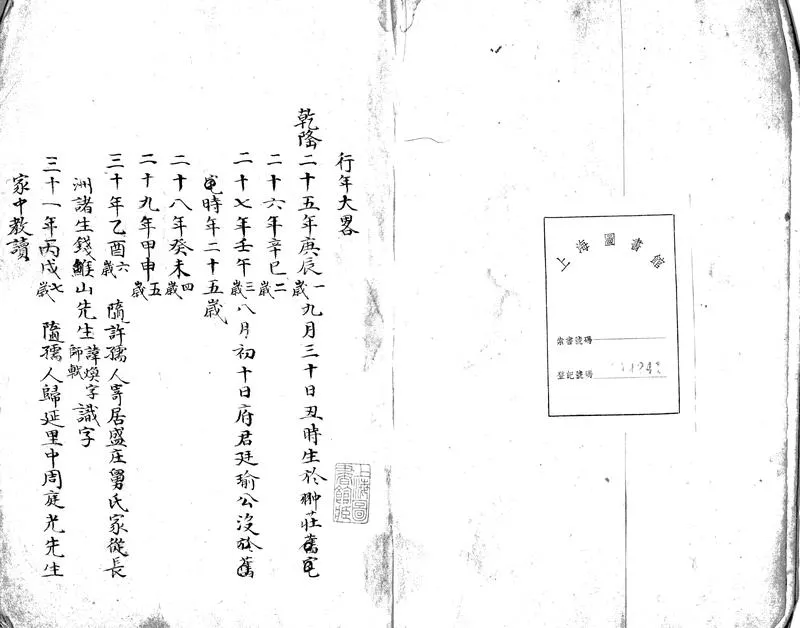 上海圖書館
索書號碼
登記號碼
行年大畧
乾隆二十五年庚辰一歲九月三十日丑時生於翀莊舊宅
二十六年辛巳二歲
二十七年壬午三歲八月初十日府君廷瑜公沒於舊
宅時年二十五歲
二十八年癸未四歲
二十九年甲申五歲
三十年乙酉六歲隨許孺人寄居盛庄舅氏家從長
洲諸生錢鯸山先生諱煥字師軾識字
三十一年丙戌七歲隨孺人歸延里中周庭光先生
家中教讀
上海圖書館藏